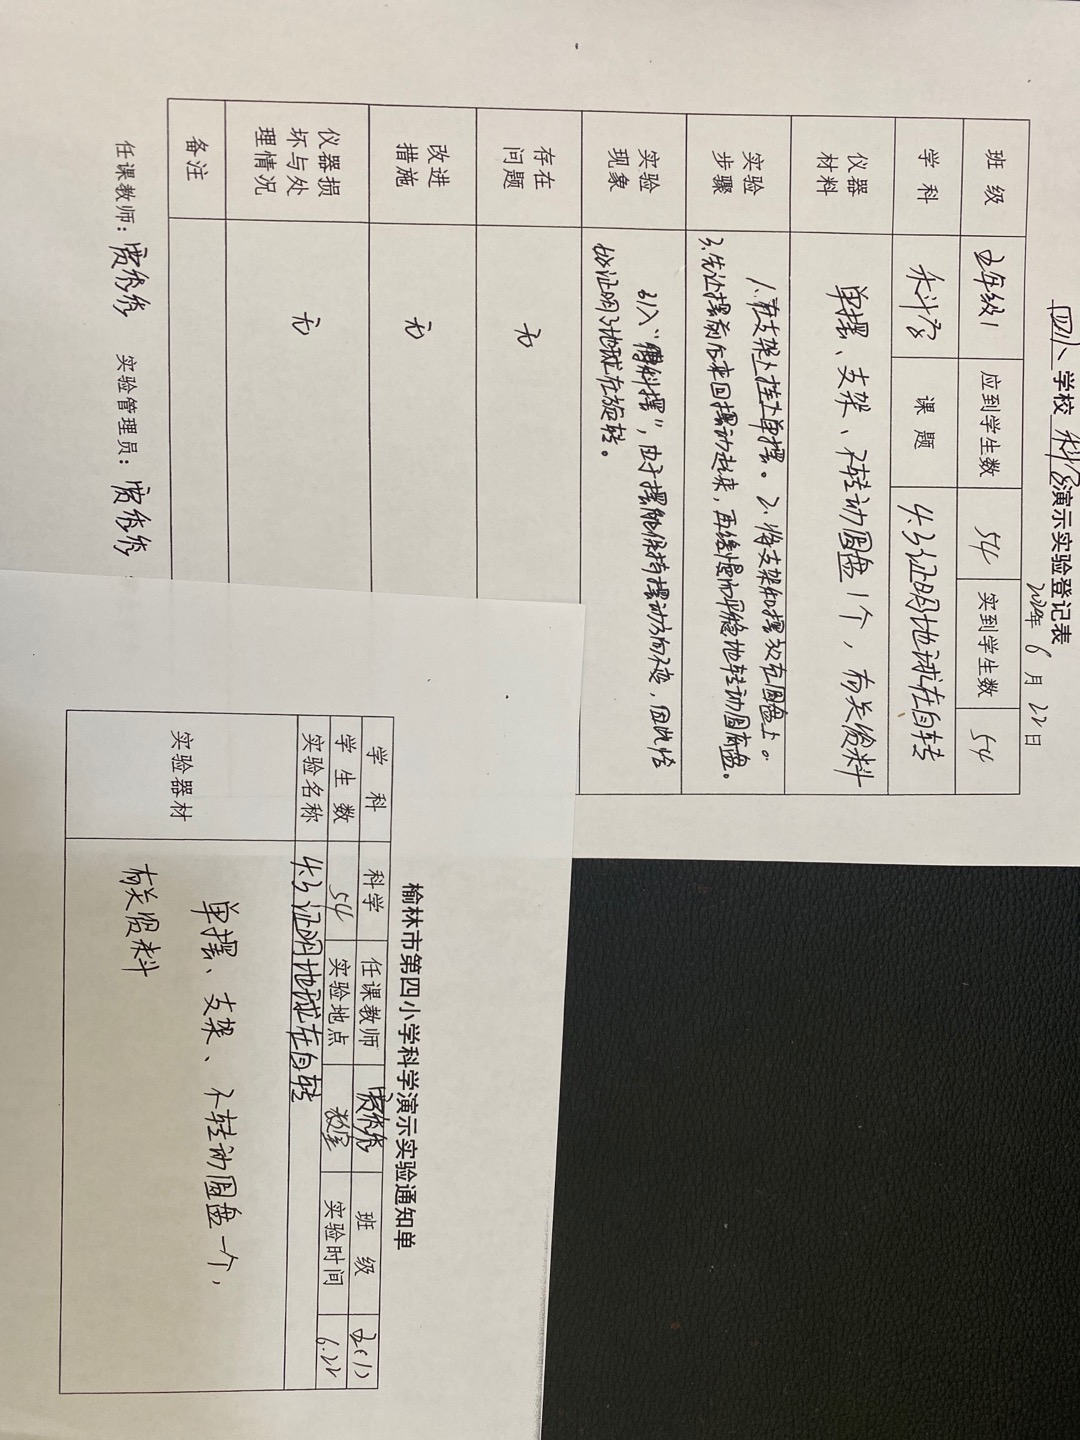 四小 学校 科学 演示实验登记表
6 月 22 日
班 级 五年级1 应到学生数 54 实到学生数 54
学 科 科学 课 题 4.3证明地球在自转
仪器材料 单摆、支架、可转动圆盘1个,有关资料
实验步骤 1.在支架上挂上单摆。2.将支架和摆放在圆盘上。
3.先让摆前后来回摆动起来,再缓慢而平稳地转动圆底盘。
实验现象 引入“傅科摆”,由于摆能保持摆动方向不变,因此恰
恰证明了地球在旋转。
存在问题 无
改进措施 无
仪器损坏与处理情况 无
备注
任课教师: 实验管理员:
榆林市第四小学科学演示实验通知单
学 科 科学 任课教师 班 级 五(1)
学 生 数 54 实验地点 教室 实验时间 6.22
实验名称 4.3证明地球在自转
实验器材 单摆、支架、可转动圆盘一个,
有关资料